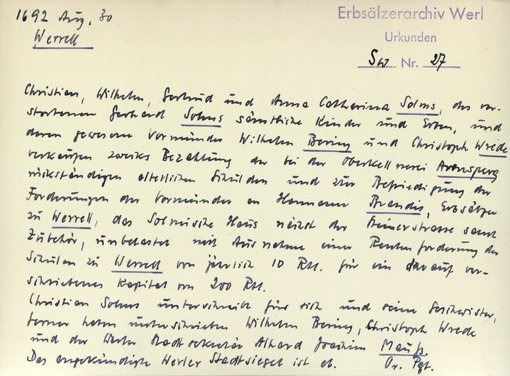 1692 Aug. 30
Werrell
Erbsälzerarchiv Werl
Urkunden
Sw Nr. 27
Christian, Wilhelm, Gertrud und Anna Catharina Solms, des ver-
storbenen Gerhard Solms sämtliche Kinder und Erben, und
deren gewesene Vormünder Wilhelm Bering und Christoph Wrede
verkaufen zwecks Bezahlung der bei der Oberkellnerei Arensperg
rückständigen elterlichen Schulden und zur Befriedigung der
Forderungen der Vormünder an Hermann Brandis, Erbsälzer
zu Werrell, das Solmische Haus nächst der Steinerstrasse samt
Zubehör, unbelastet mit Ausnahme einer Rentenforderung der
Schulen zu Werrell von jährlich 10 Rtl. für ein darauf ver-
schriebenes Kapital von 200 Rtl.
Christian Solms unterschreibt für sich und seine Geschwister,
ferner haben unterschrieben Wilhelm Bering, Christoph Wrede
und der Werler Stadtsekretär Alhard Joachim Mauß.
Das angekündigte Werler Stadtsiegel ist ab. Or. Pgt.